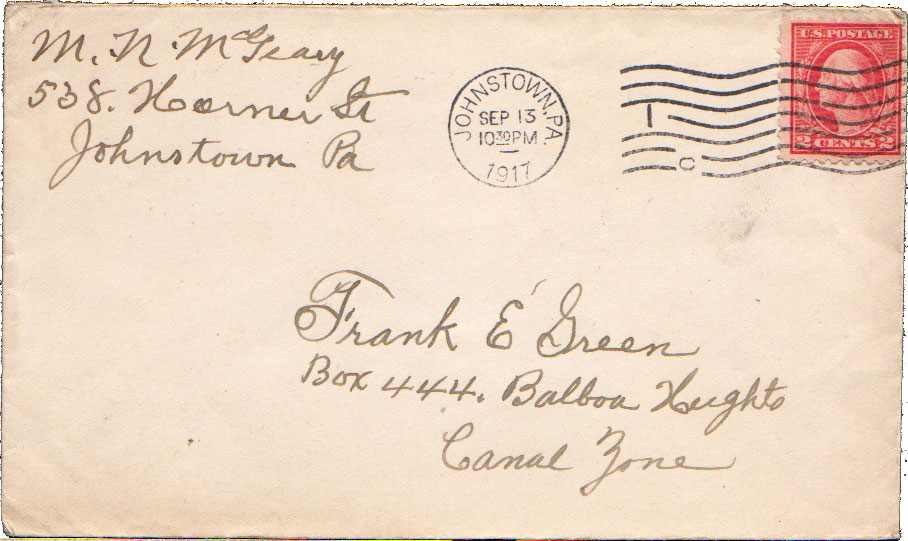 M. N. McGeary
538. Horner St
Johnstown Pa
JOHNSTOWN, PA.
SEP 13
10 30 PM
1917
1
C
U.S. POSTAGE
2 CENTS 2
Frank E Green
Box 444. Balboa Heights
Canal Zone